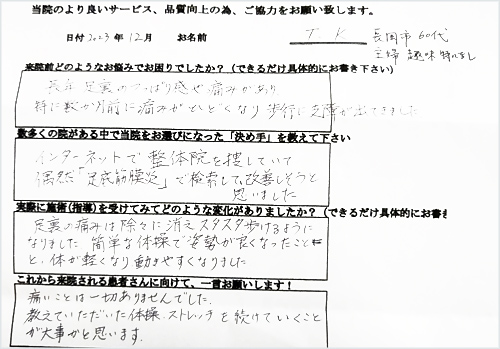 当院のより良いサービス、品質向上の為、ご協力をお願い致します。
日付 2023年 12月 お名前 T K 長岡市 60代
主婦 趣味 特になし
来院前どのようなお悩みでお困りでしたか?(できるだけ具体的にお書き下さい)
長年 足裏のつっぱり感や痛みがあり
特に数か月前に痛みがひどくなり 歩行に支障が出てきました
数多くの院がある中で当院をお選びになった「決め手」を教えて下さい
インターネットで整体院を捜していて
偶然「足底筋膜炎」で検索して改善しそうと
思いました
実際に施術(指導)を受けてみてどのような変化がありましたか?(できるだけ具体的にお書き
足裏の痛みは除々に消えスタスタ歩けるように
なりました 簡単な体操で姿勢が良くなったこと
と、体が軽くなり動きやすくなりました
これから来院される患者さんに向けて、一言お願いします!
痛いことは一切ありませんでした。
教えていただいた体操、ストレッチを続けていくこと
が大事かと思います。